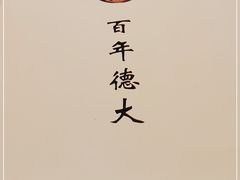 百年德大